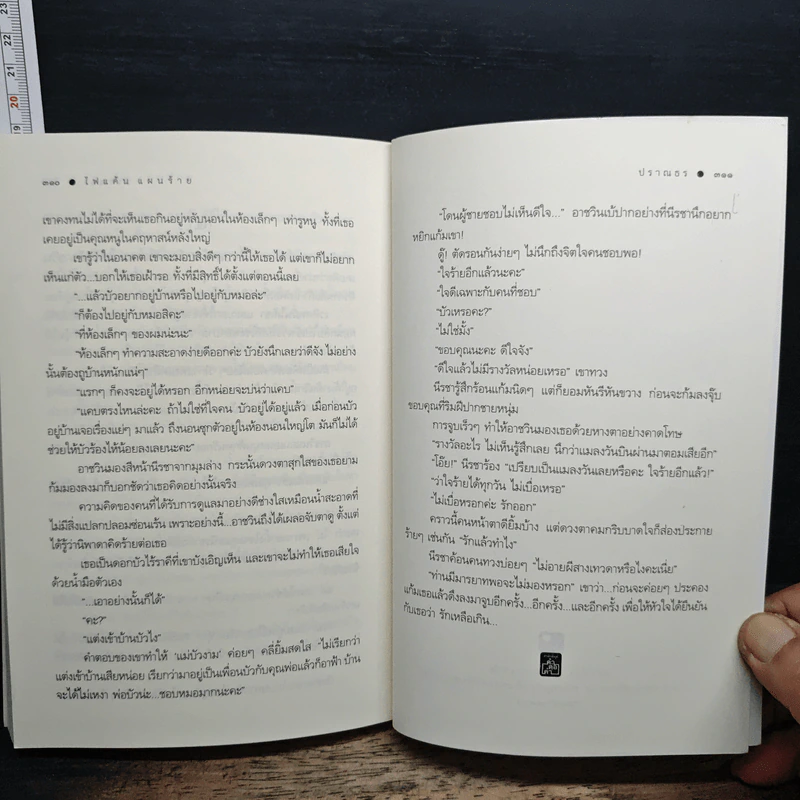 23
22
21
20
19
๓๑๐ ● ไฟแค้น แผนร้าย
เขาคงทนไม่ได้ที่จะเห็นเธอกินอยู่หลับนอนในห้องเล็กๆ เท่ารูหนู ทั้งที่เธอ
เคยอยู่เป็นคุณหนูในคฤหาสน์หลังใหญ่
เขารู้ว่าในอนาคต เขาจะมอบสิ่งดีๆ กว่านี้ให้เธอได้ แต่เขาก็ไม่อยาก
เห็นแก่ตัว...บอกให้เธอเฝ้ารอ ทั้งที่มีสิทธิ์ได้ตั้งแต่ตอนนี้เลย
“...แล้วบัวอยากอยู่บ้านหรือไปอยู่กับหมอล่ะ”
“ก็ต้องไปอยู่กับหมอสิคะ”
“ที่ห้องเล็กๆ ของผมน่ะนะ”
“ห้องเล็กๆ ทำความสะอาดง่ายดีออกค่ะ บัวยังนึกเลยว่าดีจัง ไม่อย่าง
นั้นต้องถูบ้านหนักแน่ๆ”
“แรกๆ ก็คงจะอยู่ได้หรอก อีกหน่อยจะบ่นว่าแคบ”
“แคบตรงไหนล่ะคะ ถ้าไม่ใช่ที่ใจคน บัวอยู่ได้อยู่แล้ว เมื่อก่อนบัว
อยู่บ้านเจอเรื่องแย่ๆ มาแล้ว ถึงนอนซุกตัวอยู่ในห้องนอนใหญ่โต มันก็ไม่ได้
ช่วยให้บัวร้องไห้น้อยลงเลยนะคะ”
อาชวินมองสีหน้านีรชาจากมุมล่าง กระนั้นดวงตาสุกใสของเธอยาม
ก้มมองลงมาก็บอกชัดว่าเธอคิดอย่างนั้นจริง
ความคิดของคนที่ได้รับการดูแลมาอย่างดีช่างใสเหมือนน้ำสะอาดที่
ไม่มีสิ่งแปลกปลอมซ่อนเร้น เพราะอย่างนี้...อาชวินถึงได้เผลอจับตาดู ตั้งแต่
ได้รู้ว่านิพาดาคิดร้ายต่อเธอ
เธอเป็นดอกบัวไร้ราคีที่เขาบังเอิญเห็น และเขาจะไม่ทำให้เธอเสียใจ
ด้วยน้ำมือตัวเอง
“...เอาอย่างนั้นก็ได้”
“คะ?”
“แต่งเข้าบ้านบัวไง”
คำตอบของเขาทำให้ ‘แม่บัวงาม’ ค่อยๆ คลี่ยิ้มสดใส “ไม่เรียกว่า
แต่งเข้าบ้านเสียหน่อย เรียกว่ามาอยู่เป็นเพื่อนบัวกับคุณพ่อแล้วก็อาฟ้า บ้าน
จะได้ไม่เหงา พ่อบัวน่ะ...ชอบหมอมากนะคะ”
ปราณธร ● ๓๑๑
“โดนผู้ชายชอบไม่เห็นดีใจ...” อาชวินเบ้ปากอย่างที่นีรชานึกอยาก
หยิกแก้มเขา!
ดู๊! ตัดรอนกันง่ายๆ ไม่นึกถึงจิตใจคนชอบพอ!
“ใจร้ายอีกแล้วนะคะ”
“ใจดีเฉพาะกับคนที่ชอบ”
“บัวเหรอคะ?”
“ไม่ใช่มั้ง”
“ขอบคุณนะคะ ดีใจจัง”
“ดีใจแล้วไม่มีรางวัลหน่อยเหรอ” เขาทวง
นีรชารู้สึกร้อนแก้มนิดๆ แต่ก็ยอมหันรีหันขวาง ก่อนจะก้มลงจุ๊บ
ขอบคุณที่ริมฝีปากชายหนุ่ม
การจูบเร็วๆ ทำให้อาชวินมองเธอด้วยหางตาอย่างคาดโทษ
“รางวัลอะไร ไม่เห็นรู้สึกเลย นึกว่าแมลงวันบินผ่านมาตอมเสียอีก”
“โอ๊ย!” นีรชาร้อง “เปรียบเป็นแมลงวันเลยหรือคะ ใจร้ายอีกแล้ว!”
“ว่าใจร้ายได้ทุกวัน ไม่เบื่อเหรอ”
“ไม่เบื่อหรอกค่ะ รักออก”
คราวนี้คนหน้าตาดียิ้มบ้าง แต่ดวงตาคมกริบบาดใจก็ส่องประกาย
ร้ายๆ เช่นกัน “รักแล้วทำไง”
นีรชาค้อนคนทวงบ่อยๆ “ไม่อายผีสางเทวดาหรือไงคะเนี่ย”
“ท่านมีมารยาทพอจะไม่มองหรอก” เขาว่า...ก่อนจะค่อยๆ ประคอง
แก้มเธอแล้วดึงลงมาจูบอีกครั้ง...อีกครั้ง...และอีกครั้ง เพื่อให้หัวใจได้ยืนยัน
กับเธอว่า รักเหลือเกิน...